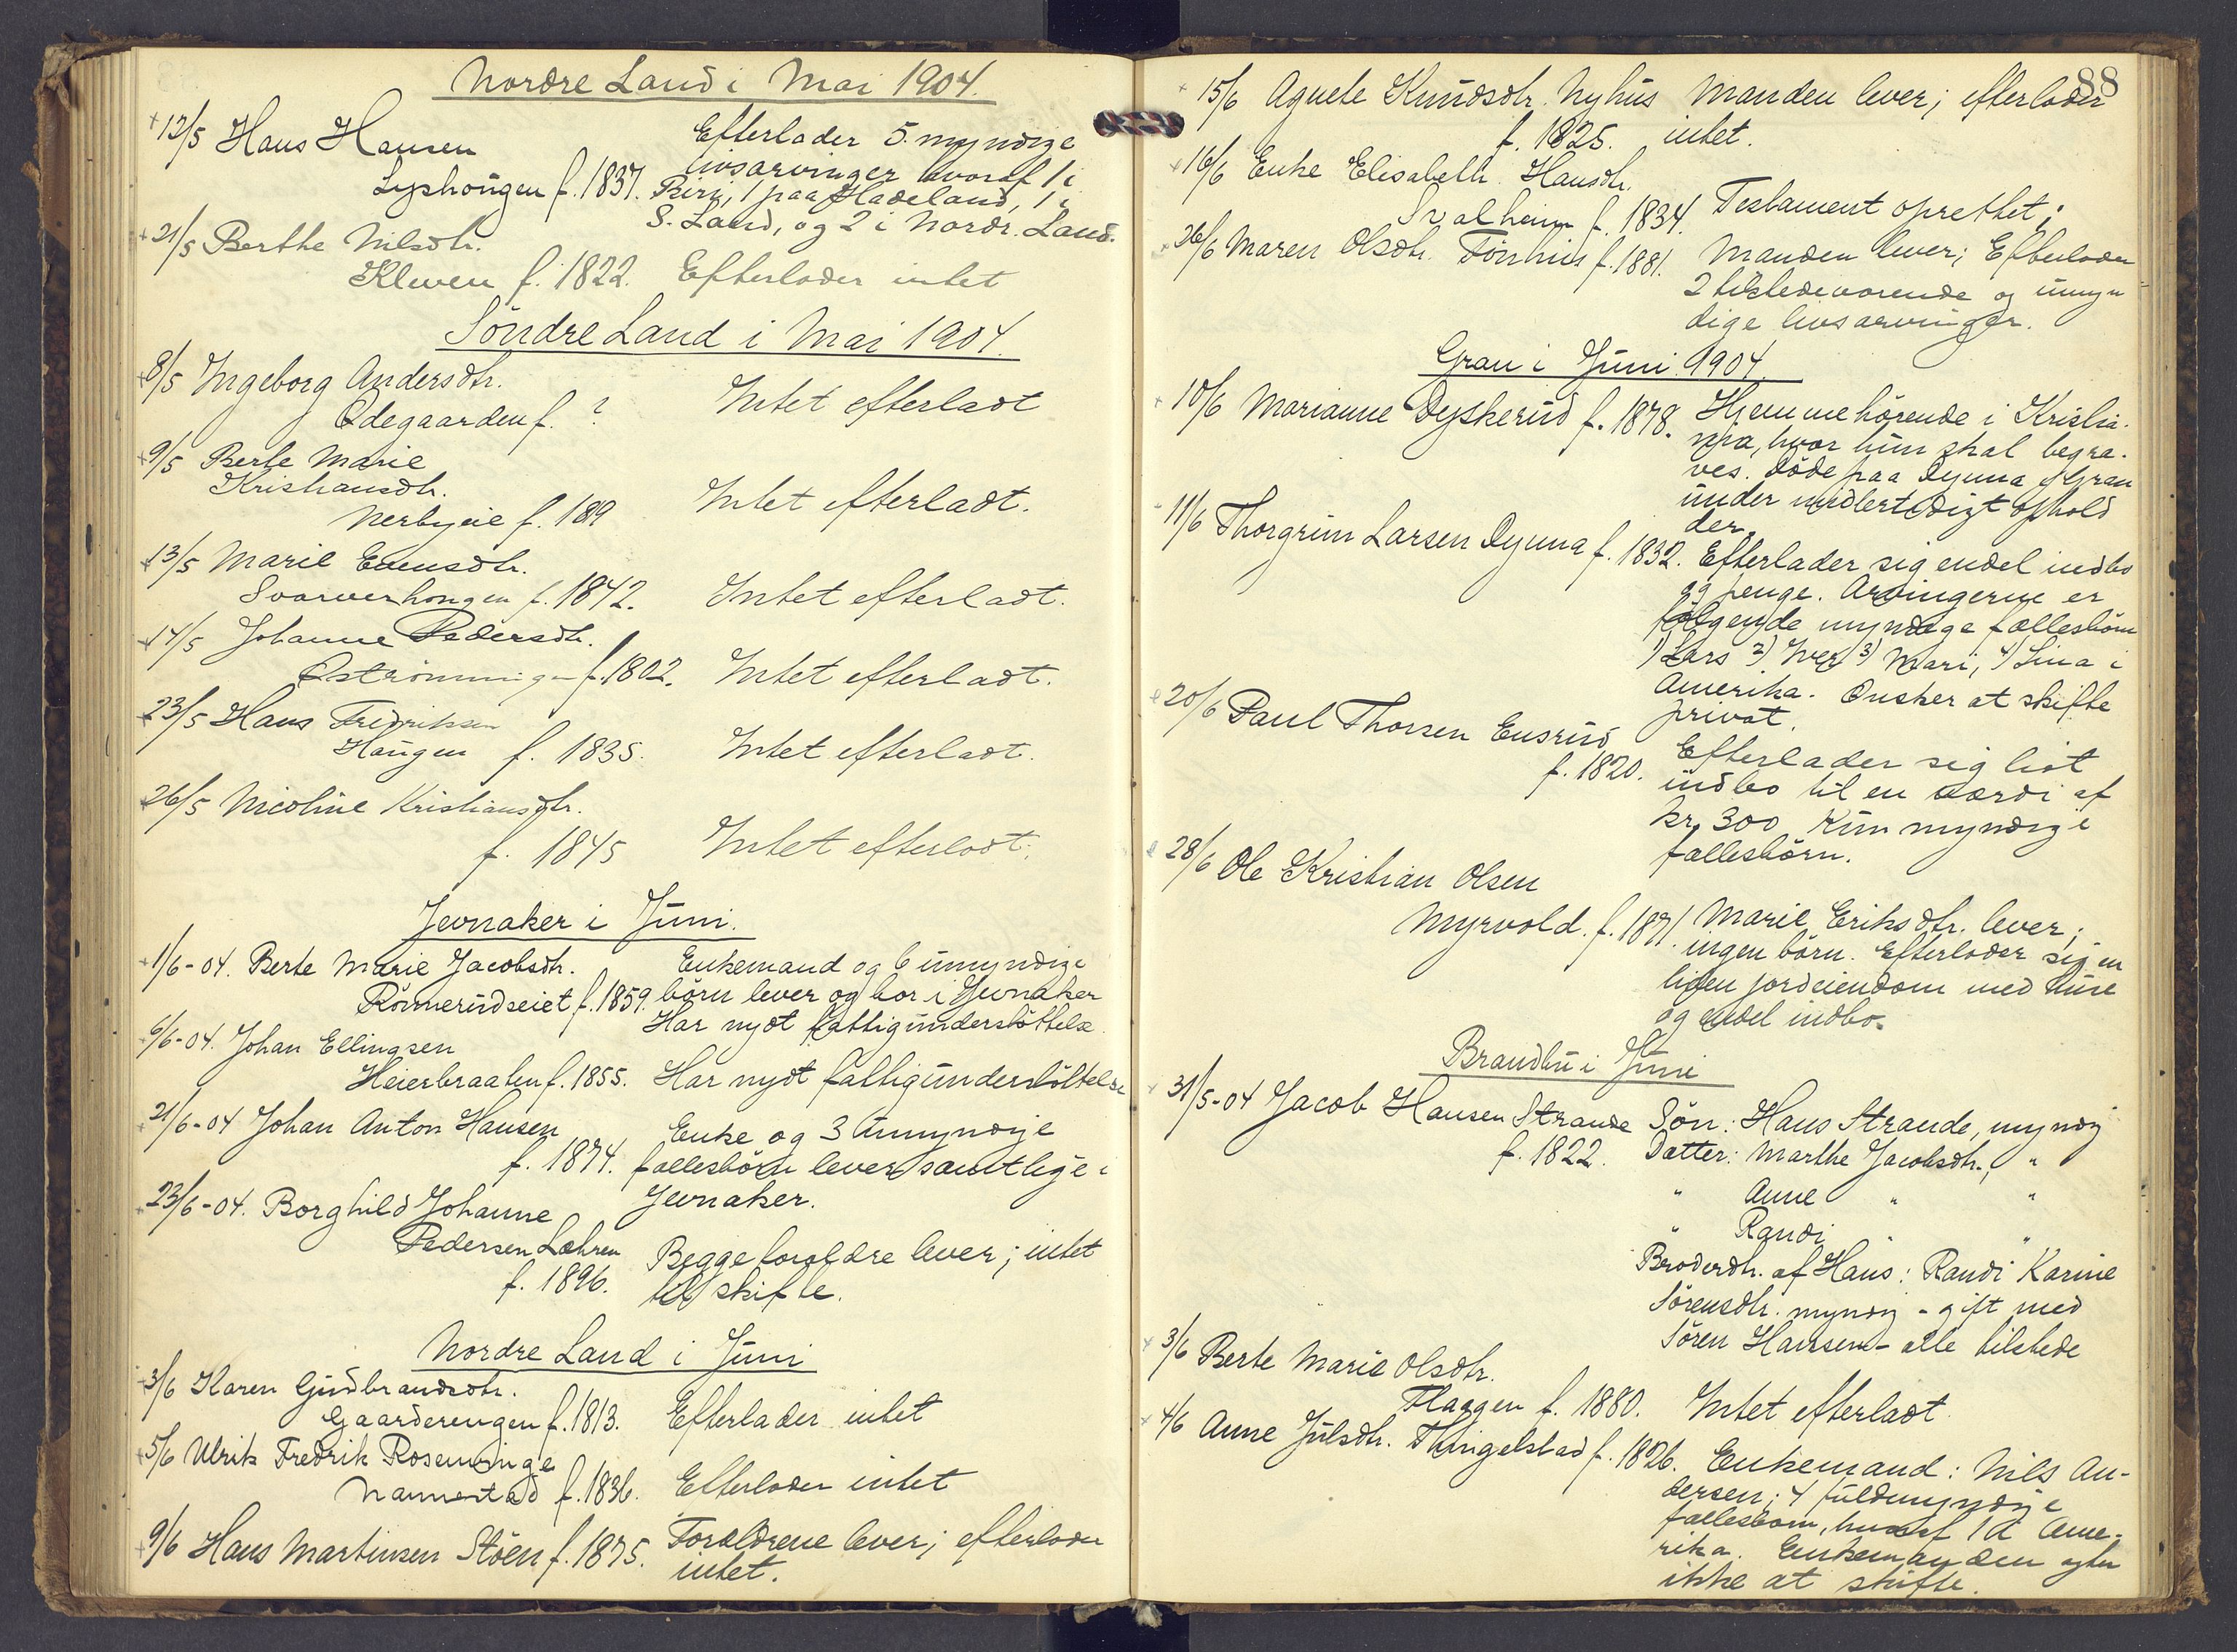 Nordre Land i Mai 1904.
12/5 Hans Hansen
Lyshougen f. 1837.
Efterlader 5 myndige
livsarvinger hvoraf 1 i
Biri, 1 paa Hadeland, 1 i
S. Land, og 2 i Nordr. Land.
21/5 Berthe Nilsdtr.
Kleven f. 1822. Efterlader intet
Söndre Land i Mai 1904.
8/5 Ingeborg Andersdtr.
Ödegaarden f. ? Intet efterladt
9/5 Berte Marie
Kristiansdtr.
Nerbyeie f. 189 Intet efterladt.
13/5 Marie Evensdtr.
Svarverhongen f. 1842. Intet efterladt.
14/5 Johanne Pedersdtr.
f. 1802. Intet efterladt.
23/5 Hans Fredriksen
Haugen f. 1835. Intet efterladt.
26/5 Nicoline Kristiansdtr.
f. 1845 Intet efterladt.
Jevnaker i Juni.
1/6-04. Berte Marie Jacobsdtr.
Rönnerudseiet f. 1859.
Enkemand og 6 umyndige
börn lever og bor i Jevnaker
Har nydt fattigunderstöttelse.
6/6-04. Johan Ellingsen
Heierbraaten f. 1855. Har nydt fattigunderstöttelse
21/6-04 Johan Anton Hansen
f. 1874.
Enke og 3 umyndige
fællesbörn lever samtlige i
Jevnaker.
23/6-04. Borghild Johanne
Pedersen Læhren
f. 1896.
Begge forældre lever; intet
til skifte.
Nordre Land i Juni
3/6 Karen Gudbrandsdtr.
Gaarderengen f. 1813. Efterlader intet
5/6 Ulrik Fredrik Rosenvinge
Nannestad f. 1836. Efterlader intet
9/6 Hans Martinsen Stöen f. 1875. Forældrene lever; efterlader
intet.
88
15/6 Agnete Knudsdtr. Nyhus Manden lever; efterlader
f. 1825. intet.
16/6 Enke Elisabeth Hansdtr.
Svalheim f. 1834. Testament oprettet;
26/6 Maren Olsdtr. Tönhus f. 1881. Manden lever; Efterlader
2 tilstedeværende og umyn-
dige livsarvinger.
Gran i Juni 1904.
10/6 Marianne Dyskerud f. 1878. Hjemmehörende i Kristia-
nia, hvor hun skal begra-
ves. Döde paa Dynna i Gran
under midlertidigt ophold
der.
11/6 Thorgrim Larsen Dynna f. 1832. Efterlader sig endel indbo
og penge. Arvingerne er
fölgende myndige fællesbörn
1) Lars 2) Iver 3) Mari, 4) Lina i
Amerika. Önsker at skifte
privat.
20/6 Paul Thorsen Eusrud
f. 1820.
Efterlader sig lidt
indbo til en værdi af
kr. 300 Kun myndige
fællesbörn.
28/6 Ole Kristian Olsen
Myrvold. f. 1871.
Marie Eriksdtr. lever;
ingen börn. Efterlader sig en
liden jordeiendom med huse
og endel indbo.
Brandbu i Juni
31/5-04 Jacob Hansen Strande
f. 1822.
Sön: Hans Strande, myndig
Datter: Marthe Jacobsdtr., "
" Anne " "
" Randi " "
Broderdtr. af Hans: Randi Karine
Sörensdtr. myndig - gift med
Sören Hansen - alle tilstede
3/6 Berte Marie Olsdtr.
Flaggen f. 1880. Intet efterladt
4/6 Anne Julsdtr. Thingelstad f. 1826. Enkemand: Nils An-
dersen; 4 fuldmyndige
fællesbörn, hvoraf 1 i Ame-
rika. Enkemanden agter
ikke at skifte.